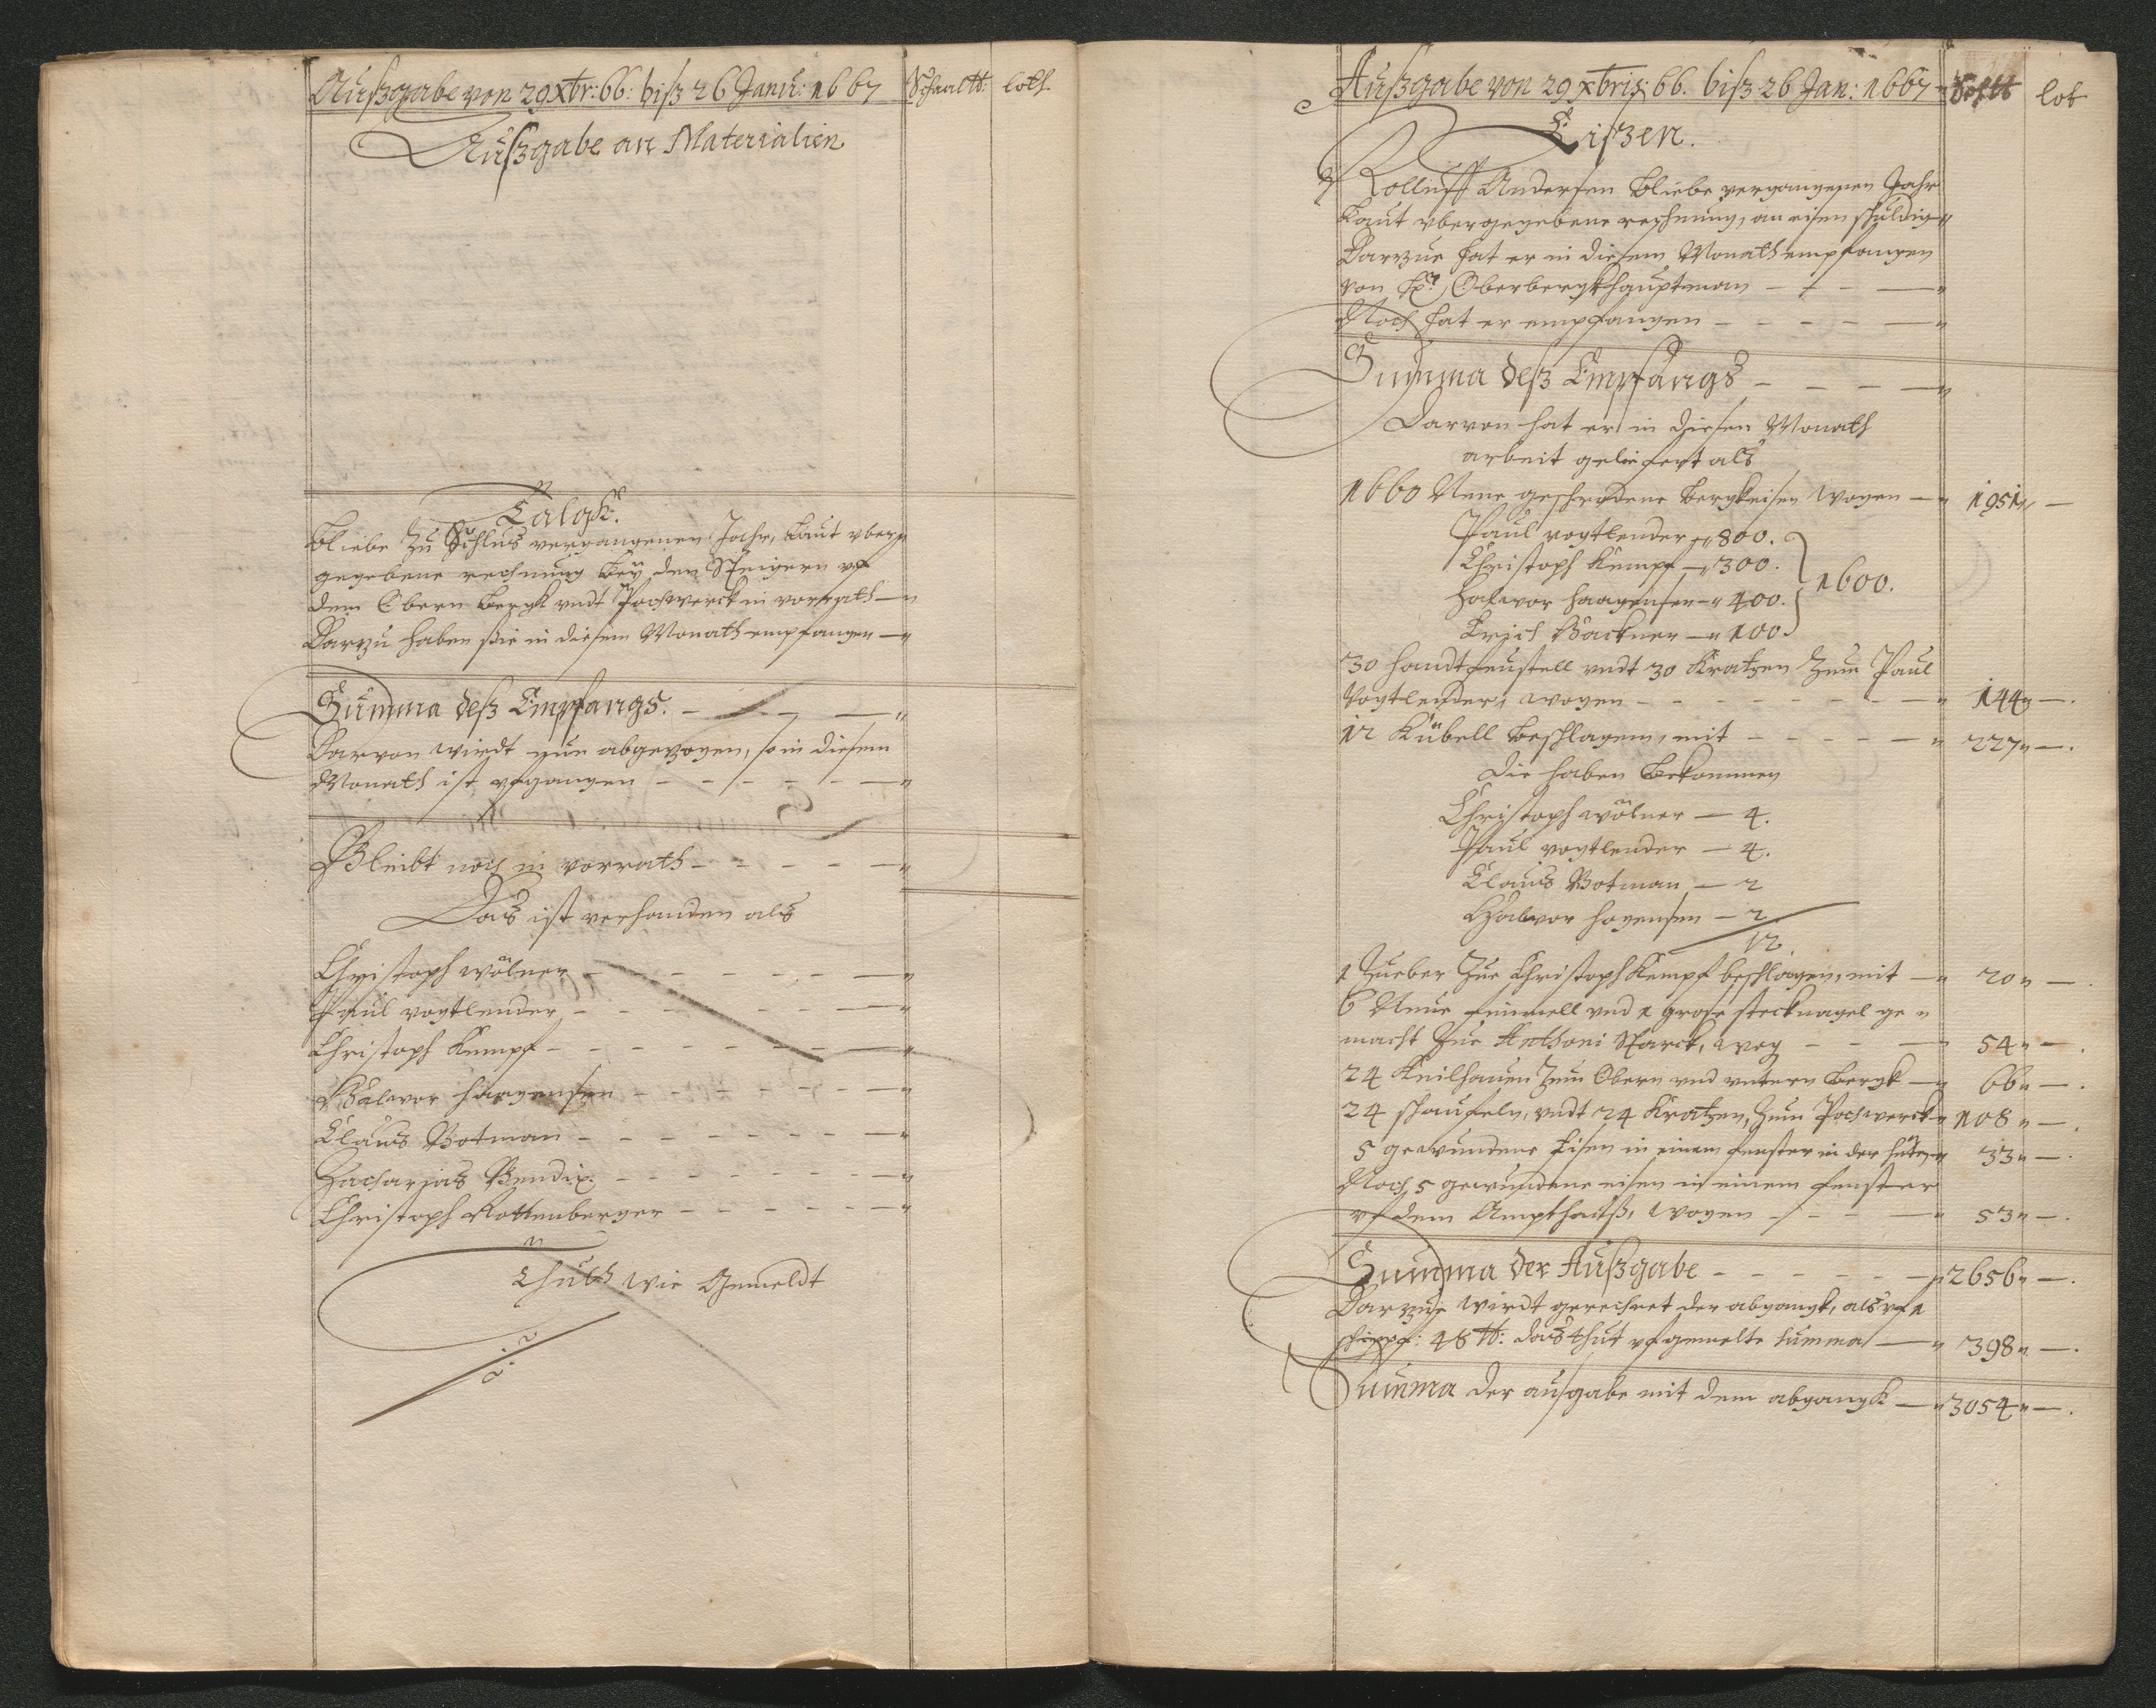 Außgabe von 29 Xbr: 66: biß 26 Janu: 1667
Schaal ℔: loth.
Außgabe an Materialien
Talgk.
Bliebe Zu Schlus vergangenen Jahr, Laut vber
gegebene rechnung bey den Steigern vf
dem Obern Bergk vndt Pochwerck in vorrath — "
Darzu haben sie in diesem Monath empfangen — "
Summa deß Empfangs. — "
Darvon wirdt nun abgezogen, so in diesem
Monath ist vfgangen - - - - - — "
Bleibt noch in vorrath - - - - - — "
Das ist verhanden als
Christoph wölner - - - - - - — "
Paul vogtlender - - - - - - — "
Christoph Kempf - - - - - - — "
Halvor haagensen - - - - - — "
Claus Botman - - - - - - — "
Zacharias Bendix - - - - - - — "
Christoph Rottenberger - - - - - — "
Thuth wie Gemeldt
Außgabe von 29 Xbris: 66. biß 26 Jan: 1667
lot
Eißen.
Rolluff Andersen Bliebe vergangenen Jahr
Laut vbergegebene rechnung, an eisen schuldig "
Darzue hat er in diesem Monath empfangen
von H: Oberbergkhauptman - - - — "
Noch hat er empfangen - - - - — "
Summa deß Empfangs - - - — "
Darvon hat er in diesen Monath
arbeit geliefert als
1660 Neue geschmdene Bergkeisen wogen — " 1951 " —
Paul vogtlender — " 800.
Christoph Kempf — " 300.
Halvor haagensen — " 400. 1600.
Erich Backner — " 100.
30 handtfeustell vndt 30 Kratzen Zum Paul
Vogtlender, wogen - - - - - - — " 144 " —.
12 Kübell Beschlagen, mit - - - - — " 227 " —.
Die haben Bekommen
Christoph wölner — 4.
Paul vogtlender — 4.
Claus Botman — 2
Halvor hogensen — 2
12.
1 Zueber Zue Christoph Kempf beschlagen, mit — " 20 " —.
6 Neue fimmell vnd 1 grose stecknagel ge "
macht Zue Anthoni Starck, wog - - — 54 " —.
24 Keilhauen Zum Obern vnd vntern Bergk — " 66 " —.
24 schaufeln, vndt 24 Kratzen, Zum Pochwerck " 108 " —.
5 gewundene Eisen in einem fenster in der hüten " 33 " —.
Noch 5 gewundene eisen in einem fenster
vf dem Ampthauß, wogen - - - — " 53 " —.
Summa der Außgabe - - - - - — " 2656 " —.
Darzue wirdt gerechnet der abgangk, als vf 1
schippf: 48 ℔: das thut vf gemelte summa — " 398 " —.
Summa der ausgabe mit dem abgangk — " 3054 " —.